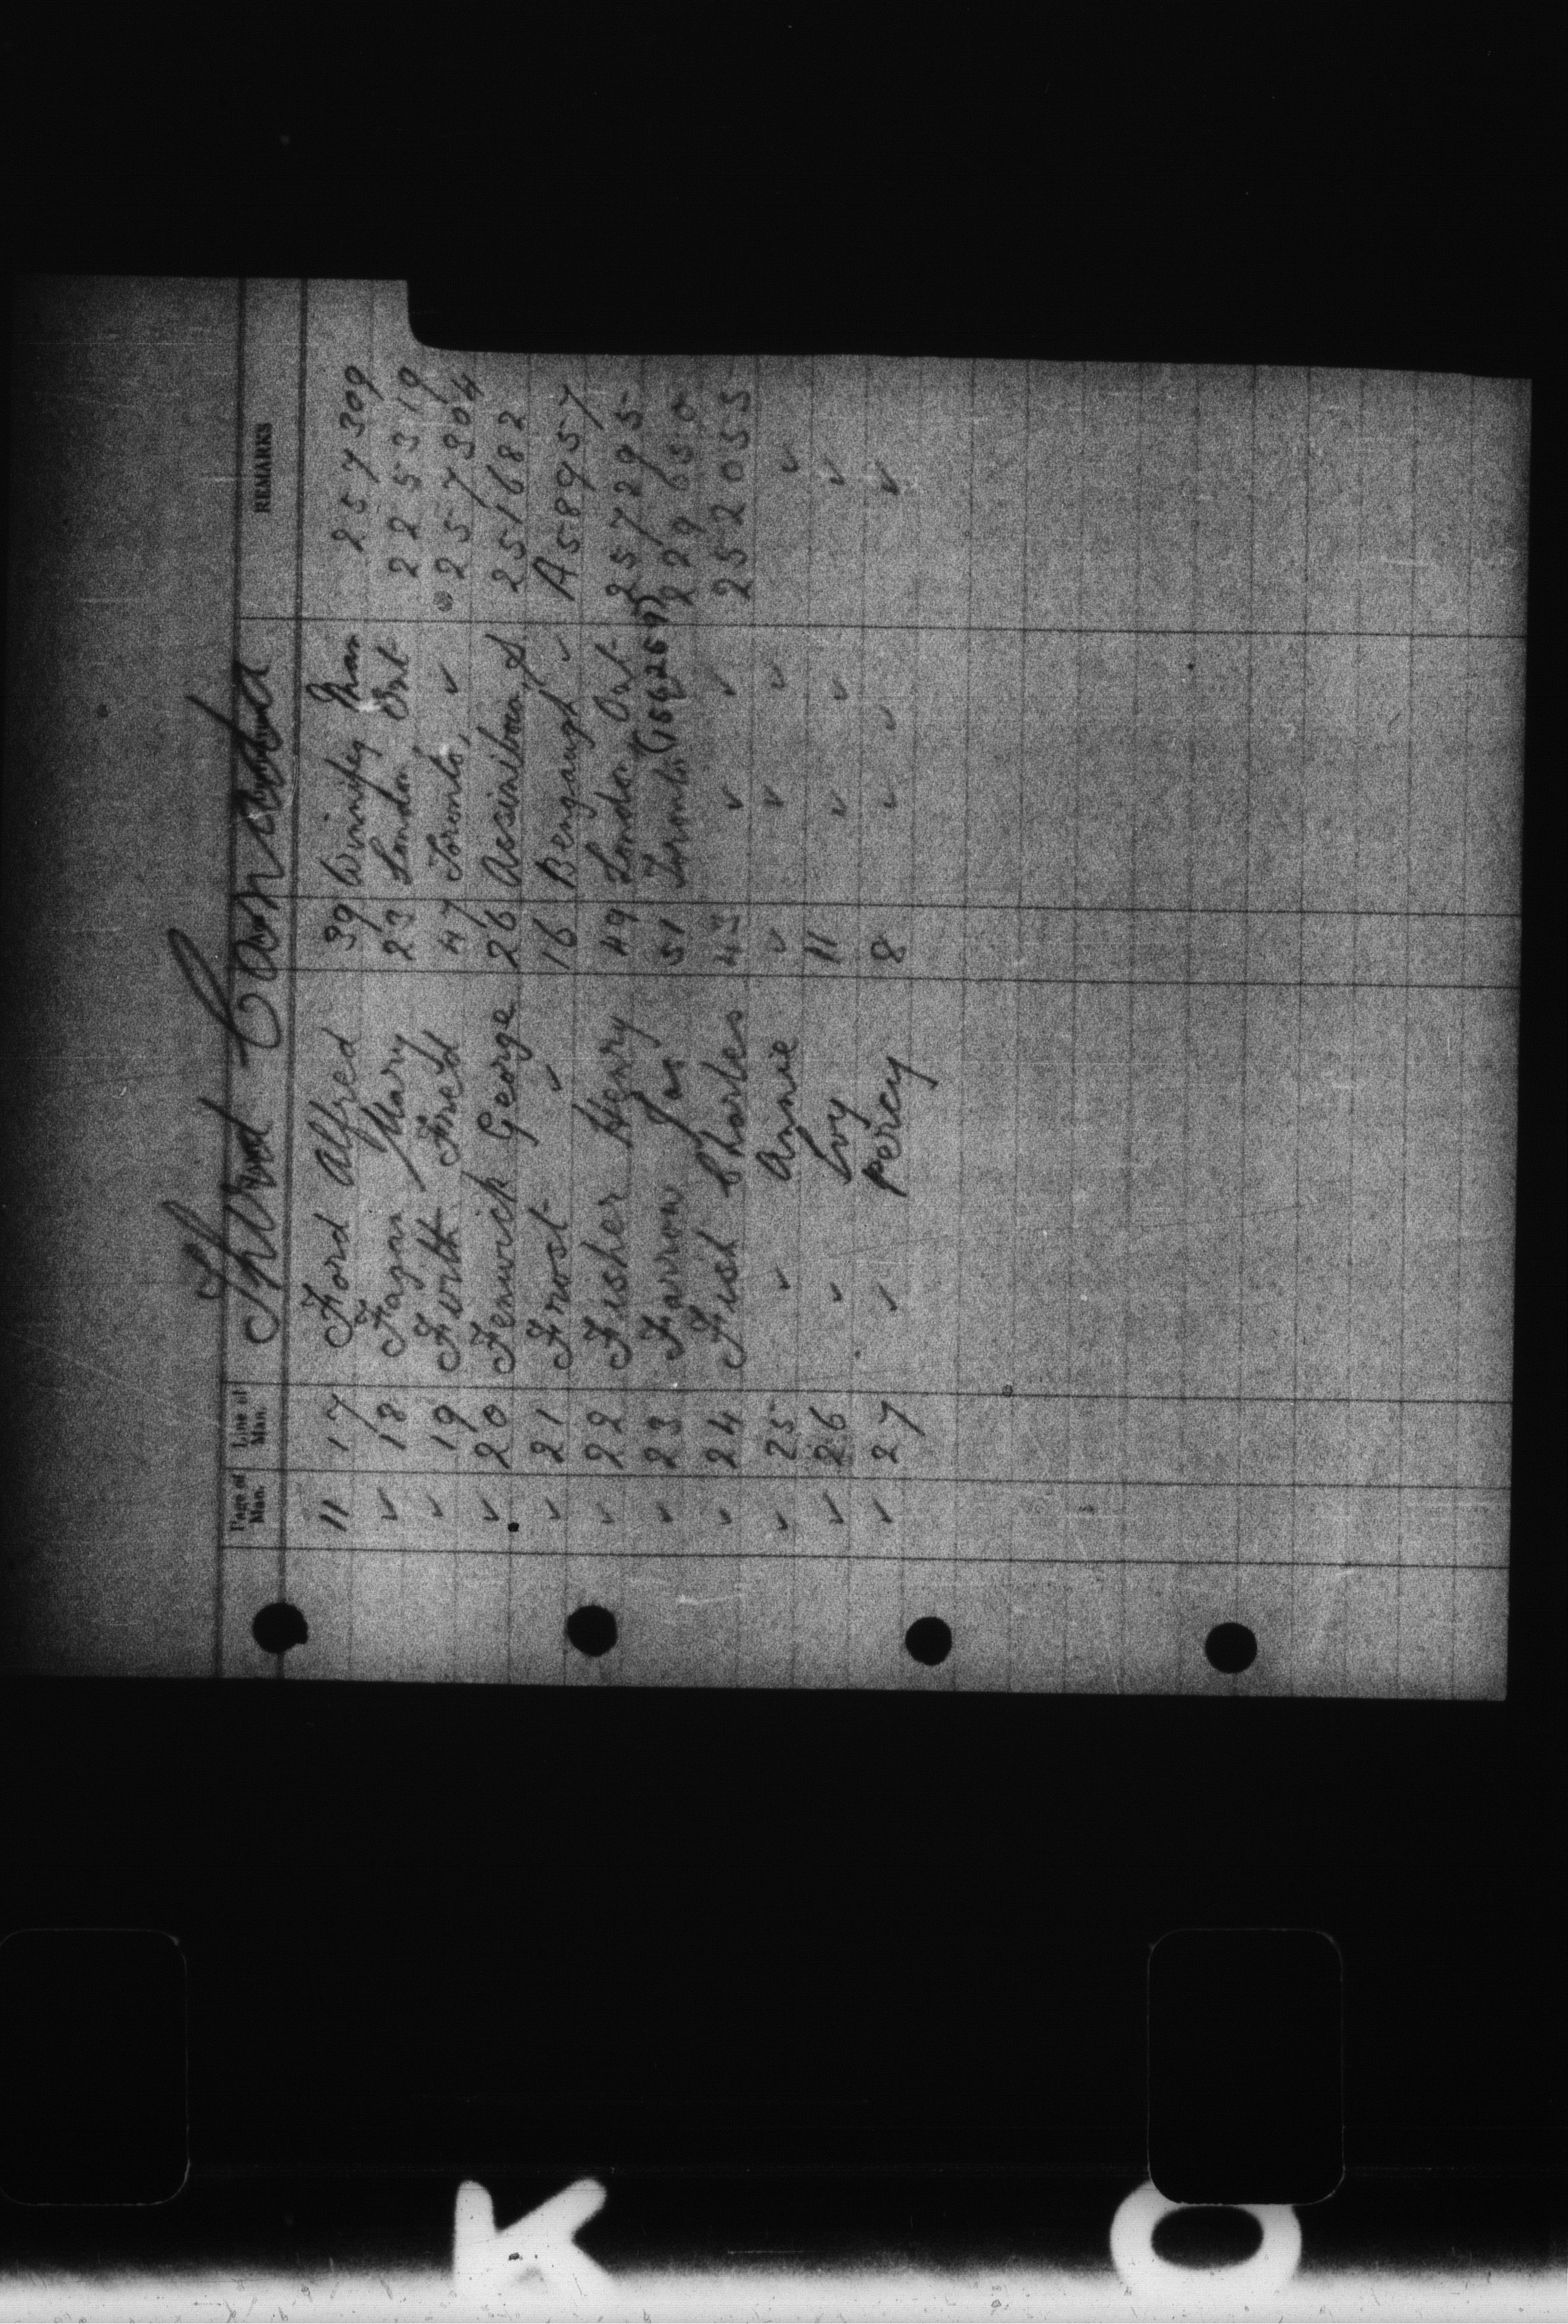 Third Canada
Page of Man. Line of Man. REMARKS
11 17 Ford Alfred 39 Winnipeg Man 257309
✓ 18 Fagan Mary 23 London Ont 225319
✓ 19 Firth Fred 47 Toronto, ✓ 257304
✓ 20 Fenwick George 26 Assiniboia, S. 251682
✓ 21 Frost ✓ 16 Bengough ✓ A58957
✓ 22 Fisher Henry 49 London Ont 257295
✓ 23 Farrow Jas 51 Toronto 229650
✓ 24 Fish Charles 43 ✓ ✓ 252055
✓ 25 ✓ Annie ✓ ✓ ✓ ✓
✓ 26 ✓ Ivy 11 ✓ ✓ ✓
✓ 27 ✓ Percy 8 ✓ ✓ ✓
K O